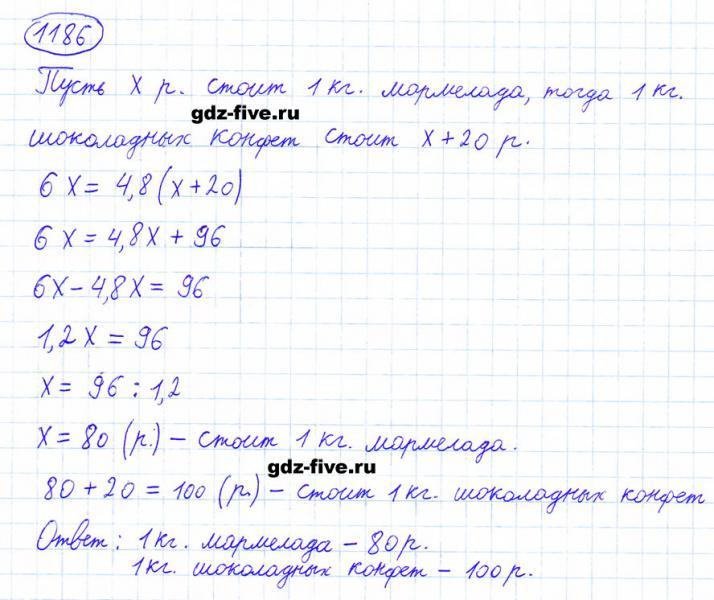 1186
Пусть x р. стоит 1 кг. мармелада, тогда 1 кг.
gdz-five.ru
шоколадных конфет стоит x + 20 р.
6x = 4,8(x+20)
6x = 4,8x + 96
6x - 4,8x = 96
1,2x = 96
x = 96 : 1,2
x = 80 (р.) - стоит 1 кг. мармелада.
gdz-five.ru
80 + 20 = 100 (р.) - стоит 1 кг. шоколадных конфет
Ответ: 1 кг. мармелада - 80 р.
1 кг. шоколадных конфет - 100 р.